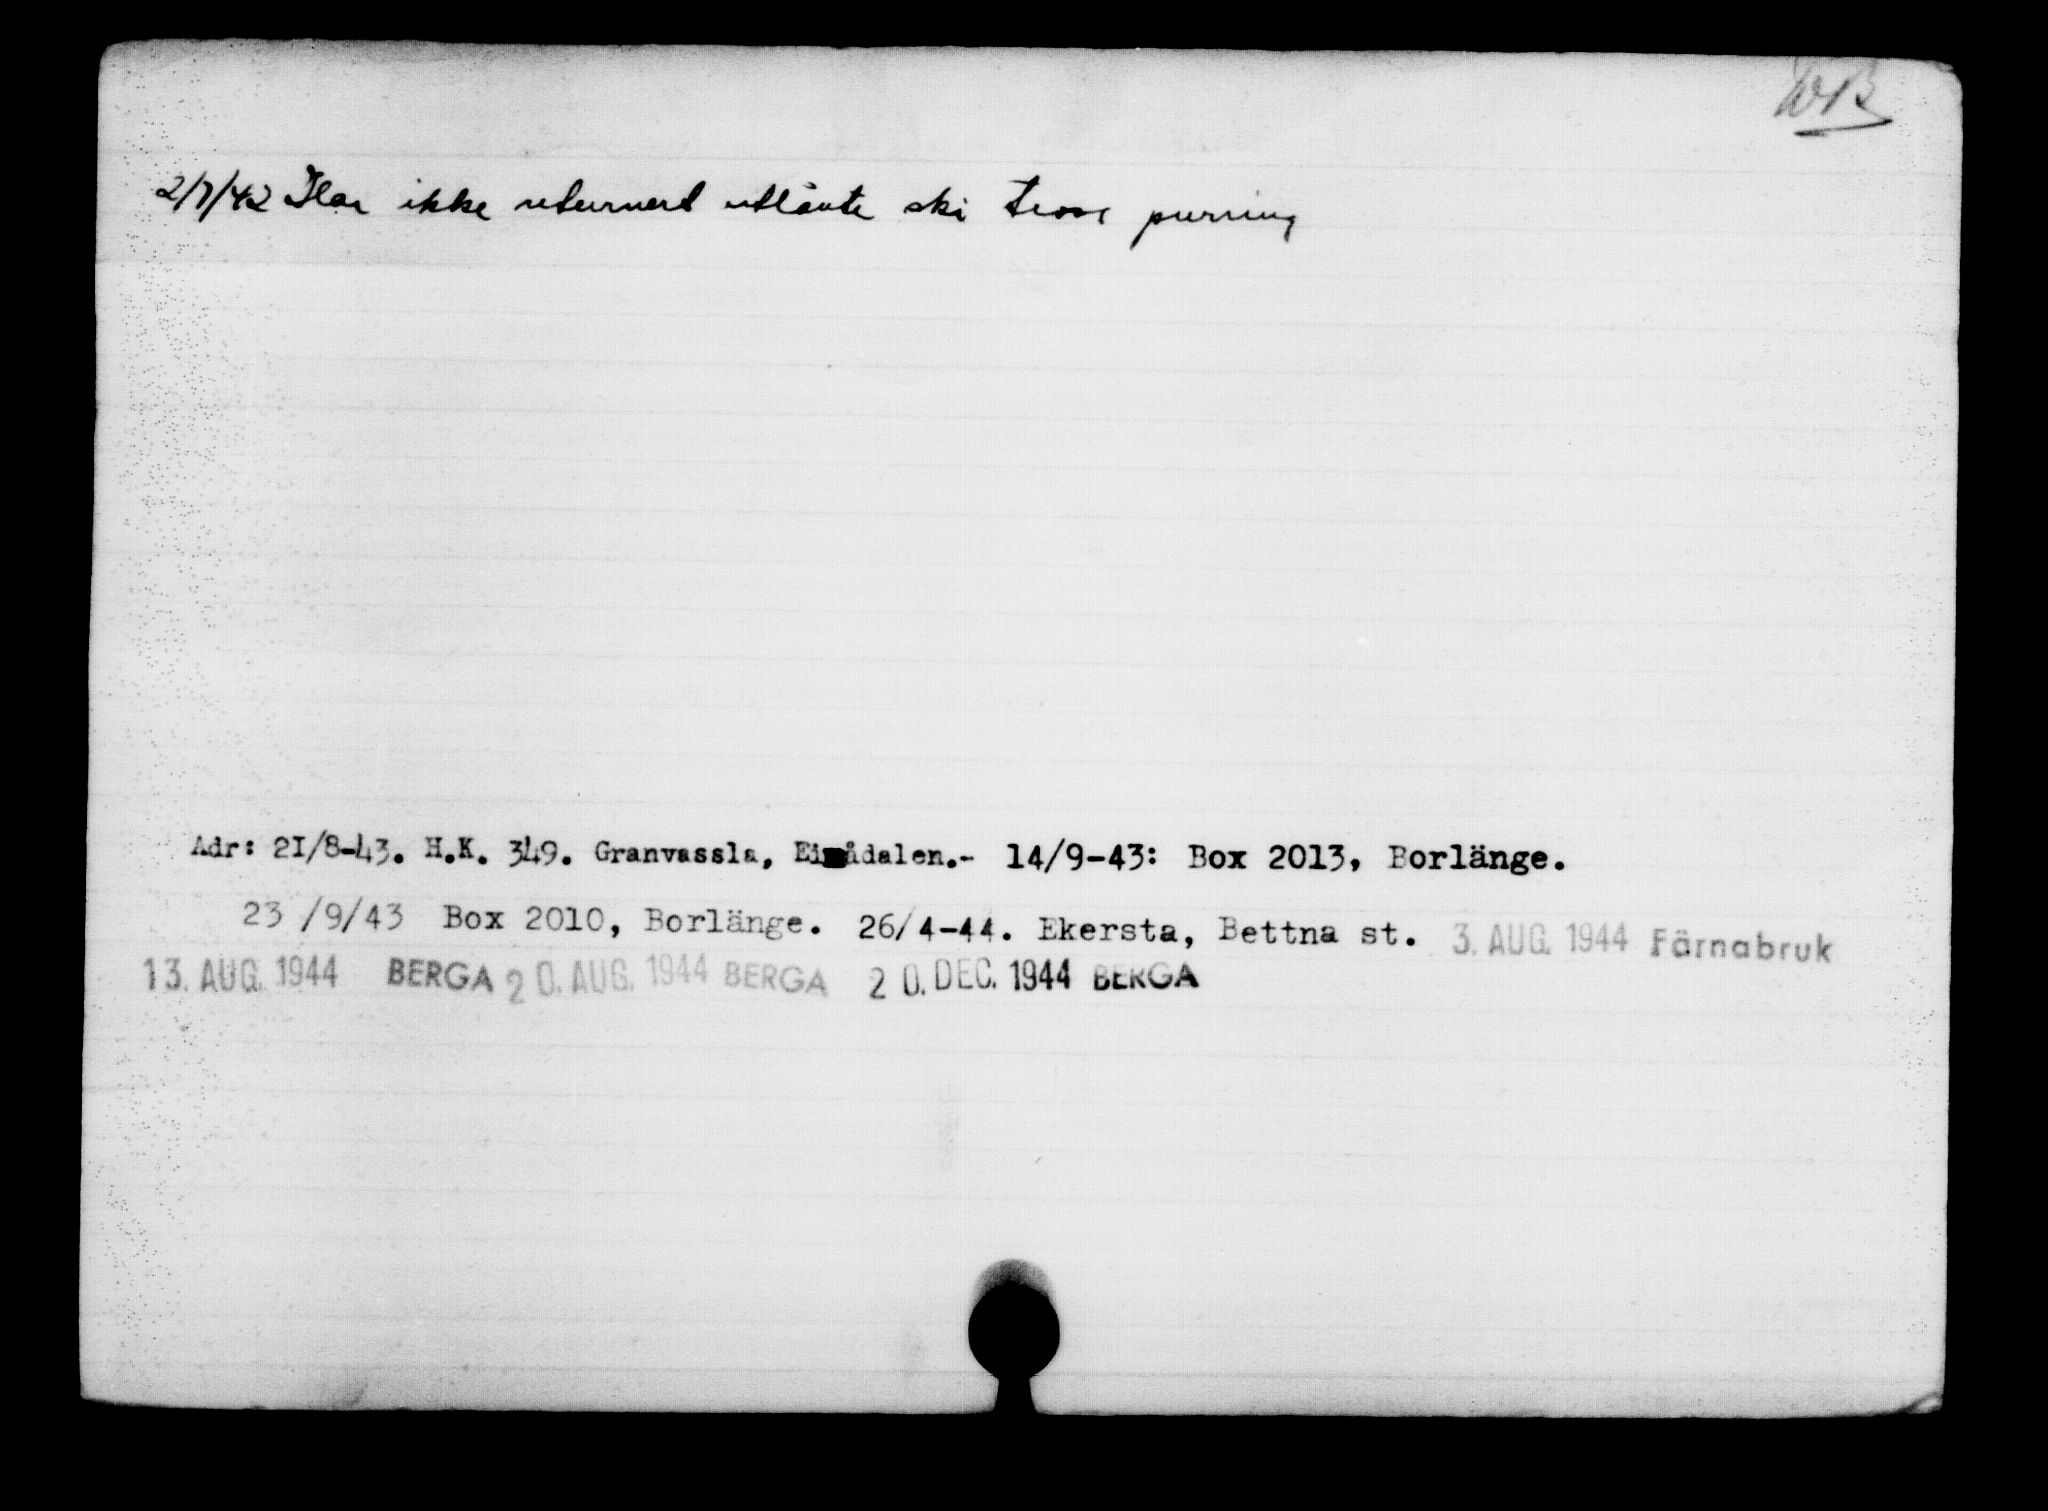 WB
2/7/42 Har ikke returnert utlånte ski tross purring
Adr: 21/8-43. H.K. 349. Granvassla, Eimådalen.- 14/9-43: Box 2013, Borlänge.
23 /9/43 Box 2010, Borlänge. 26/4-44. Ekersta, Bettna st. 3. AUG. 1944 Färnabruk
13. AUG. 1944 BERGA 20. AUG. 1944 BERGA 20. DEC. 1944 BERGA